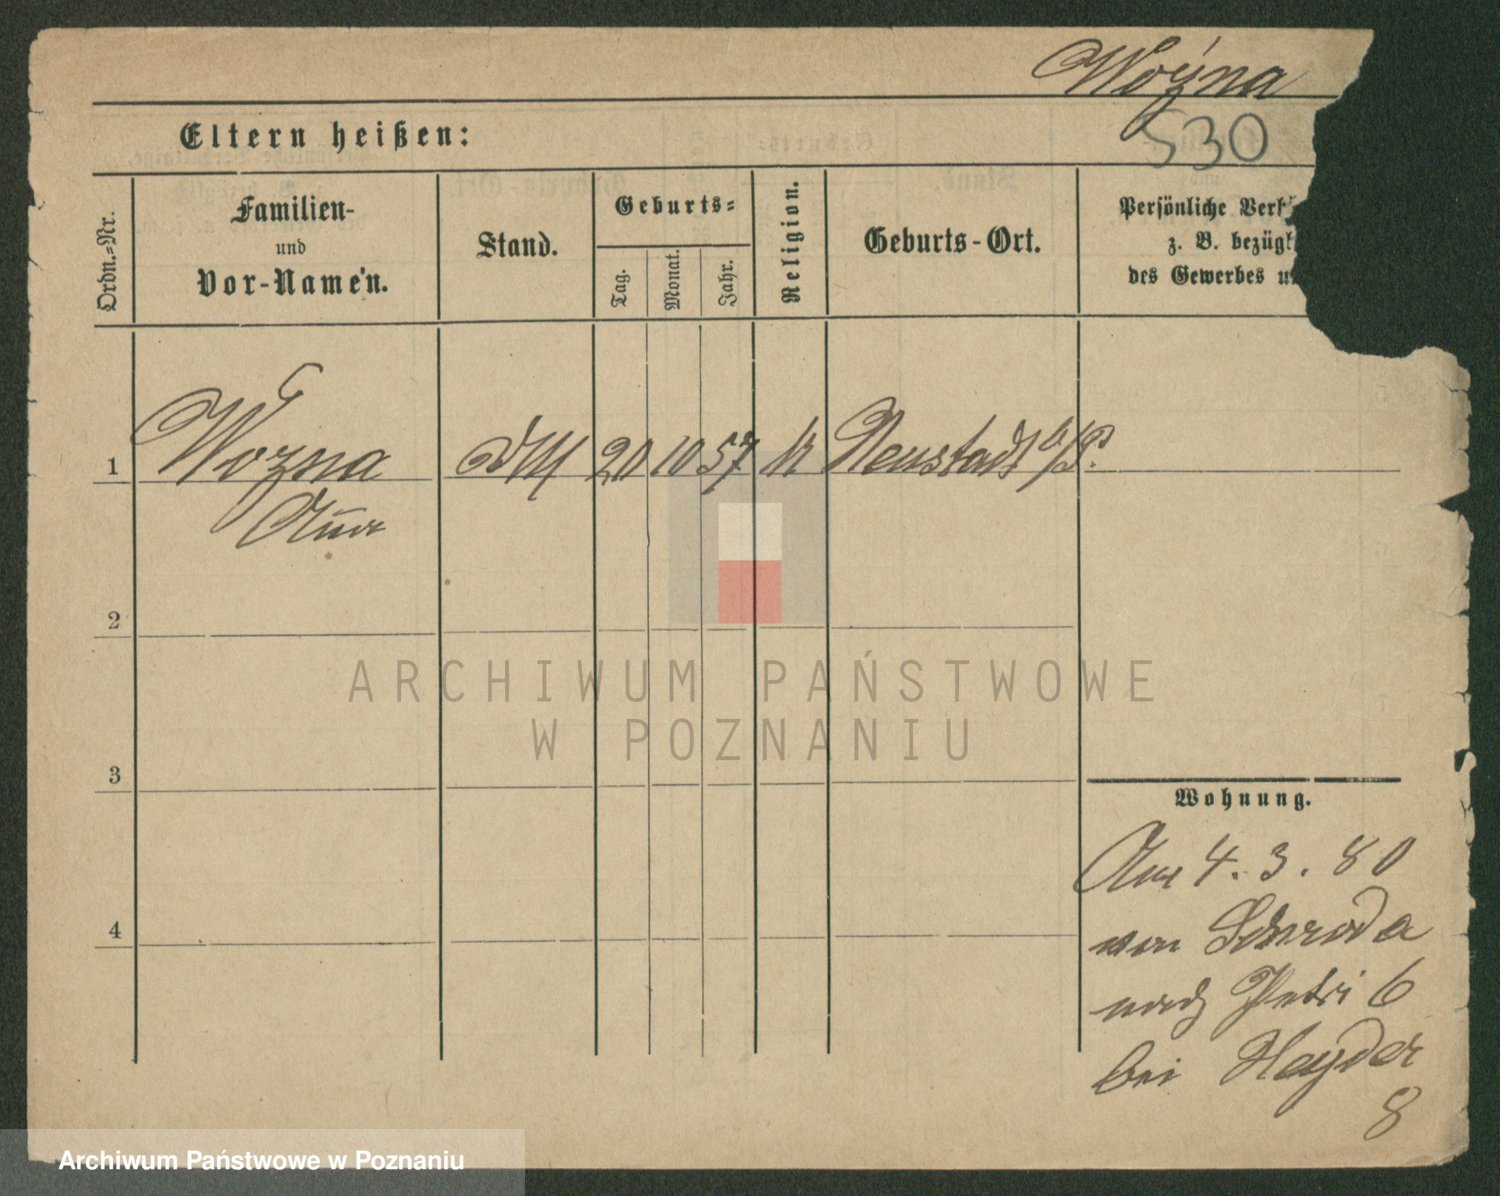 Woźna
530
Eltern heißen:
Ordn.-Nr.
Familien-
und
Vor-Namen.
Stand.
Geburts-
Tag.
Monat.
Jahr.
Religion.
Geburts-Ort.
Persönliche Verh
z. B. bezügl
des Gewerbes u
1 Wozna DM 20 10 57 k Neustadt a/P.
Anna
2
3
4
Wohnung.
Am 4. 3. 80
von Schroda
nach Petri 6
bei Heyder
8
ARCHIWUM PAŃSTWOWE
W POZNANIU
Archiwum Państwowe w Poznaniu